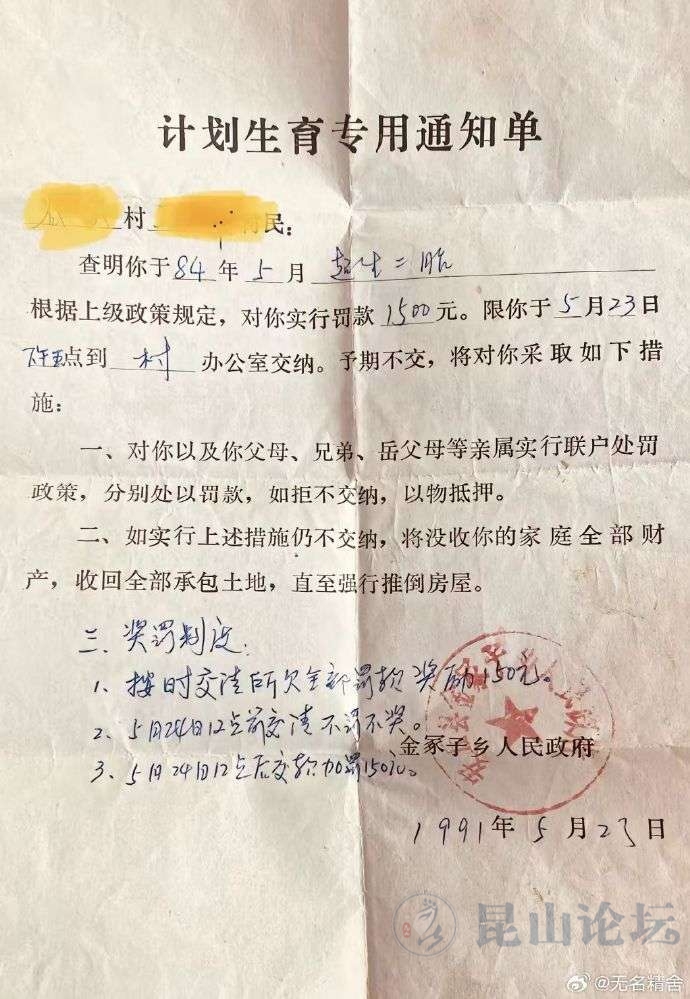 计划生育专用通知单
村 村民：
查明你于84年5月超生二胎
根据上级政策规定，对你实行罚款1500元。限你于5月23日
下午5点到村办公室交纳。予期不交，将对你采取如下措
施：
一、对你以及你父母、兄弟、岳父母等亲属实行联户处罚
政策，分别处以罚款，如拒不交纳，以物抵押。
二、如实行上述措施仍不交纳，将没收你的家庭全部财
产，收回全部承包土地，直至强行推倒房屋。
三、奖罚制度：
1、按时交清所欠全部罚款奖励150元。
2、5月24日12点前交清不罚不奖。
3、5月24日12点后交款加罚150元。
金冢子乡人民政府
1991年5月23日
昆山论坛
@无名精舍